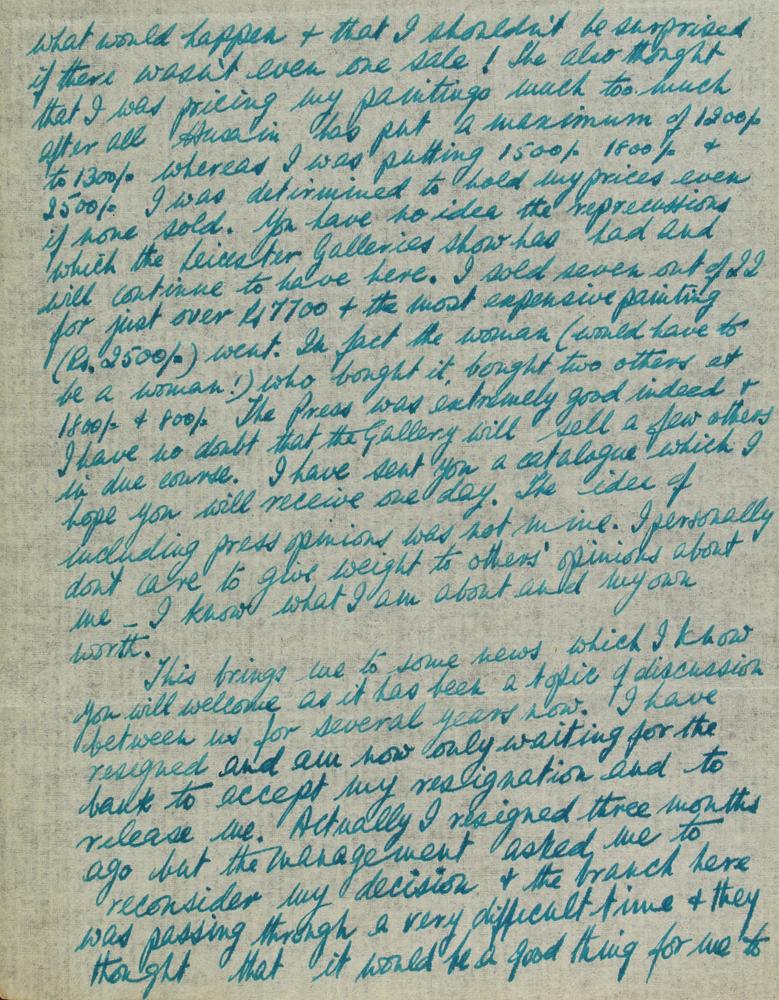 what would happen + that I shouldn't be surprised
if there wasn't even one sale! She also thought
that I was pricing my paintings much too much
after all Husain has put a maximum of 1200/-
to 1300/- whereas I was putting 1500/- 1800/- +
2500/- I was detirmined to hold my prices even
if none sold. You have no idea the reprecussions
which the Leicester Galleries show has had and
will continue to have here. I sold seven out of 22
for just over Rs 7700 + the most expensive painting
(Rs. 2500/-) went. In fact the woman (would have to
be a woman!) who bought it, bought two others at
1800/- + 800/- The Press was extremely good indeed +
I have no doubt that the Gallery will sell a few others
in due course. I have sent you a catalogue which I
hope you will receive one day. The idea of
including press opinions was not mine. I personally
don't care to give weight to others' opinions about
me – I know what I am about and my own
worth.
This brings me to some news which I know
you will welcome as it has been a topic of discussion
between us for several years now. I have
resigned and am now only waiting for the
bank to accept my resignation and to
release me. Actually I resigned three months
ago but the management asked me to
reconsider my decision + the branch here
was passing through a very difficult time + they
thought that it would be a good thing for me to